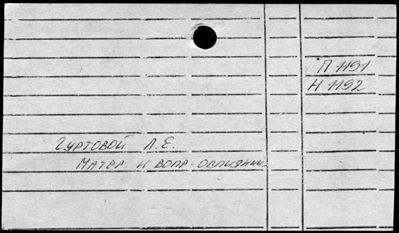 П 1191
Н 1192
Гуртовой Л.Е.
Матер к вопр. о влиянии